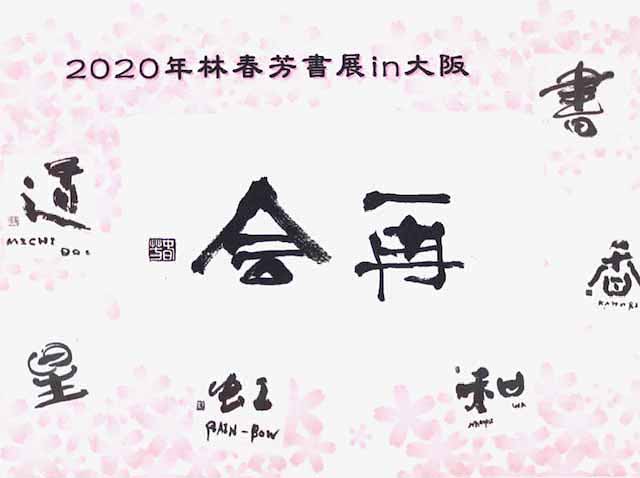 2020年林春芳書展in大阪
書
道
MICHI
再会
香
KAHORI
星
虹
RAIN-BOW
和
WA